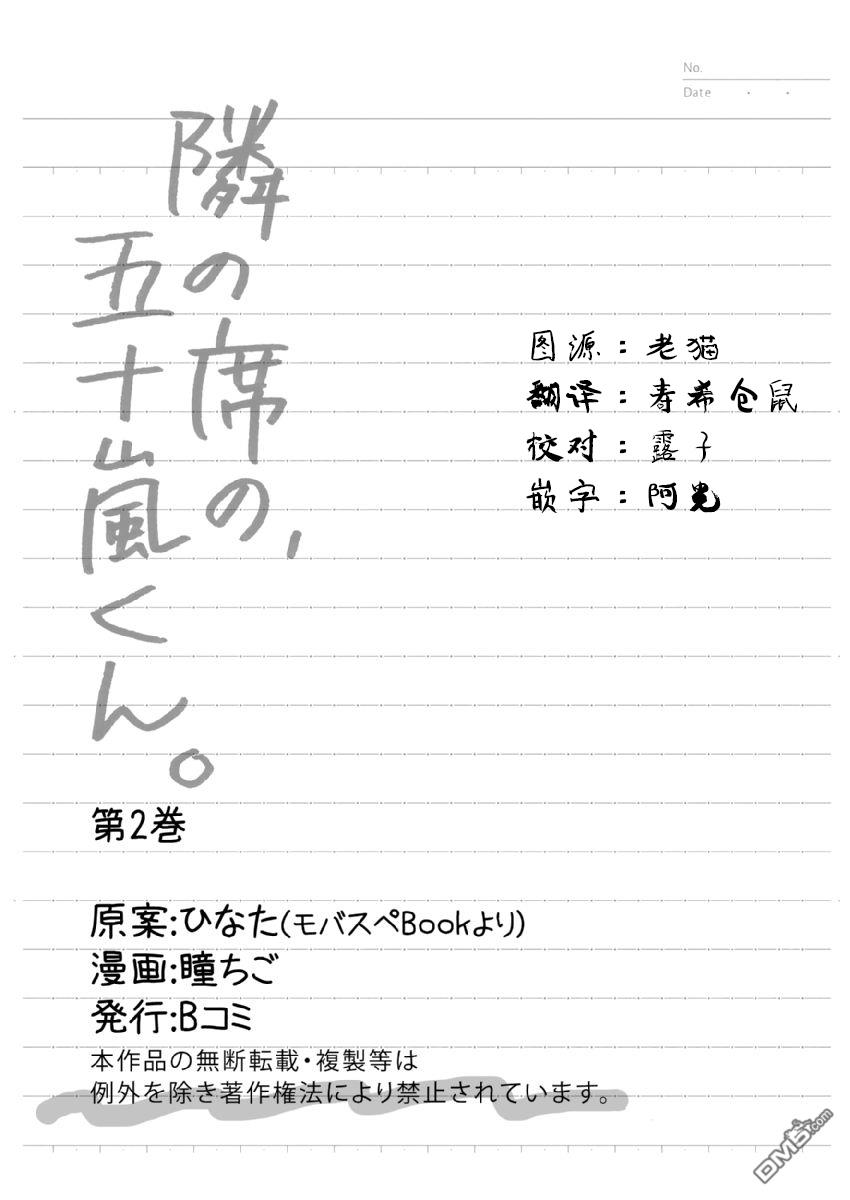 No.
Date ・ ・
隣の席の、
五十嵐くん。
图源：老猫
翻译：春希仓鼠
校对：露子
嵌字：阿光
第2巻
原案:ひなた(モバスペBookより)
漫画:瞳ちご
発行:Bコミ
本作品の無断転載・複製等は
例外を除き著作権法により禁止されています。
DM5.com